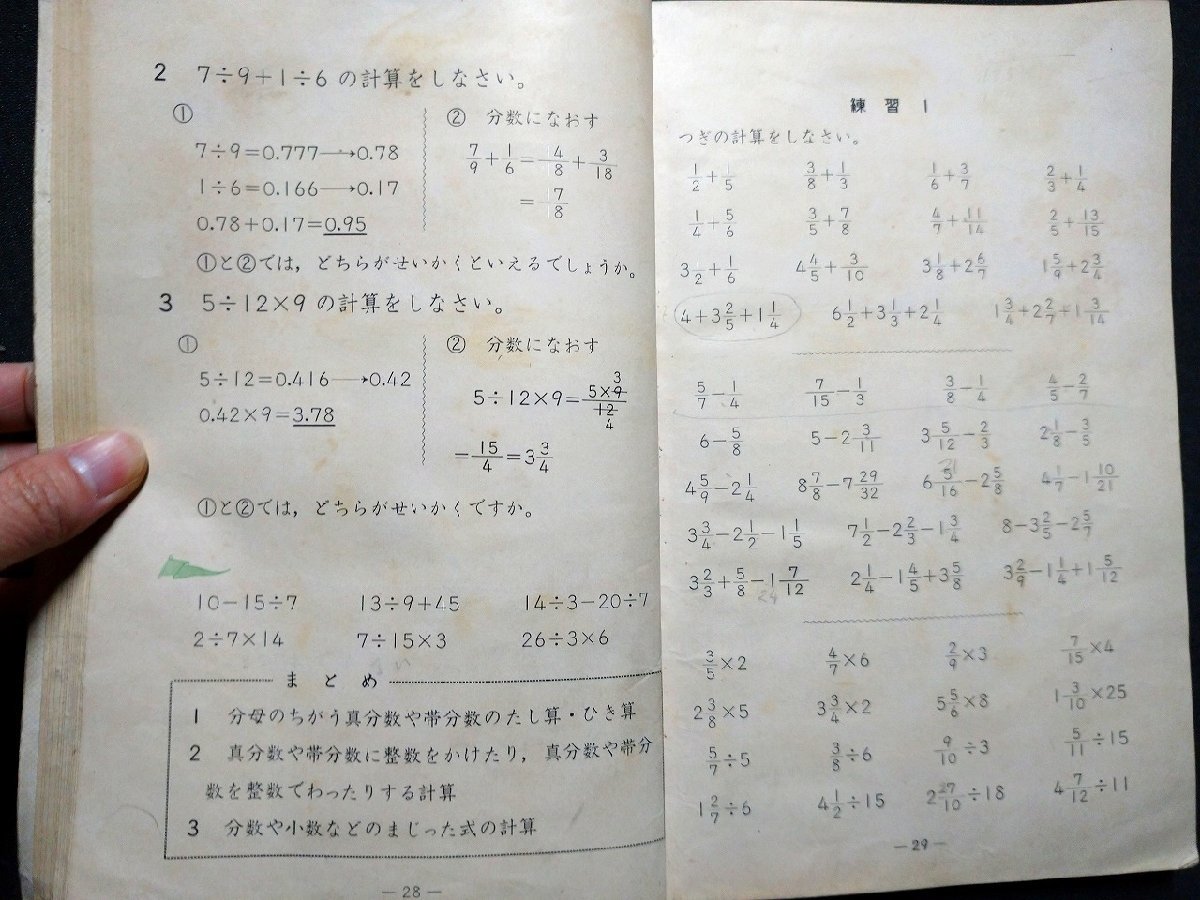 2 7÷9+1÷6 の計算をしなさい。
① ② 分数になおす
7÷9=0.777→0.78
1÷6=0.166→0.17
0.78+0.17=0.95
7/9+1/6=14/18+3/18
=17/18
①と②では，どちらがせいかくといえるでしょうか。
3 5÷12×9 の計算をしなさい。
① ② 分数になおす
5÷12=0.416→0.42
0.42×9=3.78
5÷12×9=5×9/12
3
4
=15/4=3 3/4
①と②では，どちらがせいかくですか。
10−15÷7 13÷9+45 14÷3−20÷7
2÷7×14 7÷15×3 26÷3×6
まとめ
1 分母のちがう真分数や帯分数のたし算・ひき算
2 真分数や帯分数に整数をかけたり，真分数や帯分
数を整数でわったりする計算
3 分数や小数などのまじった式の計算
—28—
練習1
つぎの計算をしなさい。
1/2+1/5 3/8+1/3 1/6+3/7 2/3+1/4
1/4+5/6 3/5+7/8 4/7+11/14 2/5+13/15
3 1/2+1/6 4 4/5+3/10 3 1/8+2 6/7 1 5/9+2 3/4
4+3 2/5+1 1/4 6 1/2+3 1/3+2 1/4 1 3/4+2 2/7+1 3/14
5/7−1/4 7/15−1/3 3/8−1/4 4/5−2/7
6−5/8 5−2 3/11 3 5/12−2/3 2 1/8−3/5
4 5/9−2 1/4 8 7/8−7 29/32 6 5/16−2 5/8 4 1/7−1 10/21
3 3/4−2 1/2−1 1/5 7 1/2−2 2/3−1 3/4 8−3 2/5−2 5/7
3 2/3+5/8−1 7/12 2 1/4−1 4/5+3 5/8 3 2/9−1 1/4+1 5/12
24
3/5×2 4/7×6 2/9×3 7/15×4
2 3/8×5 3 3/4×2 5 5/6×8 1 3/10×25
5/7÷5 3/8÷6 9/10÷3 5/11÷15
1 2/7÷6 4 1/2÷15 2 27/10÷18 4 7/12÷11
—29—